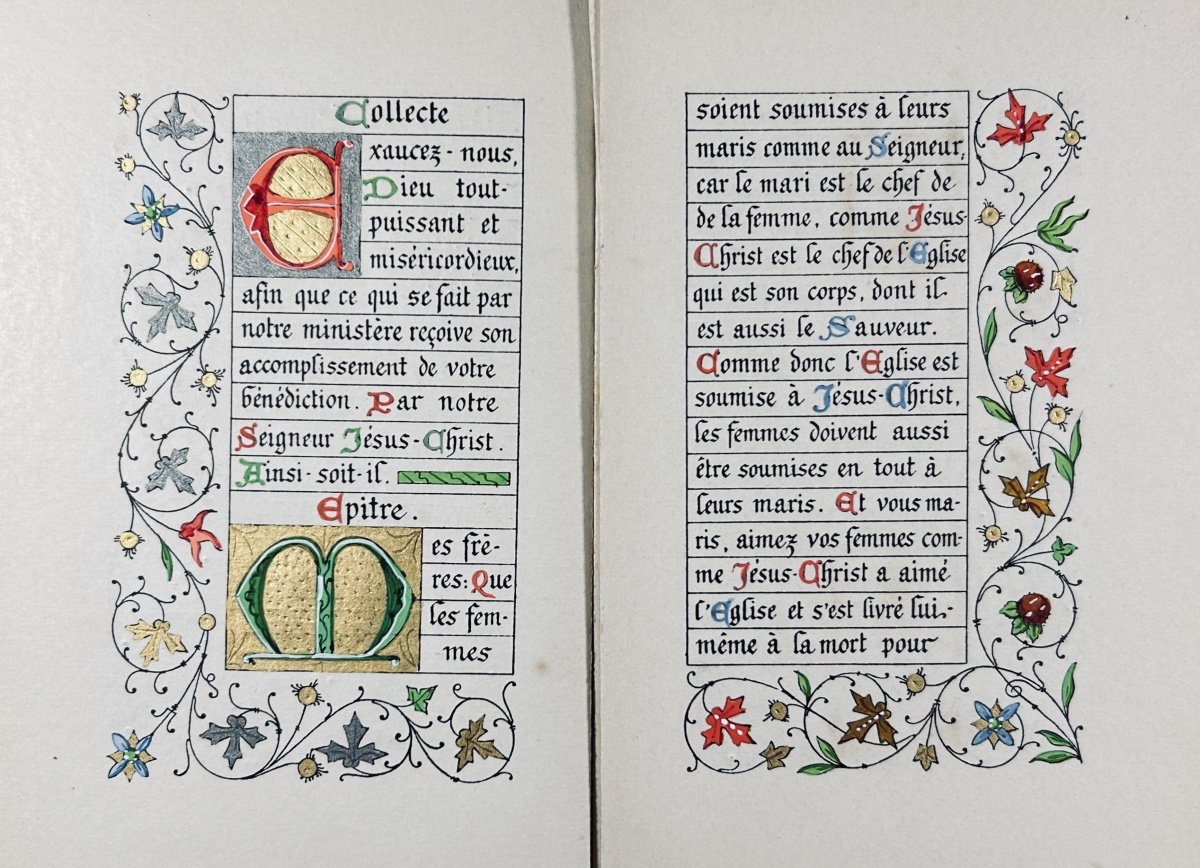 Collecte
Exaucez-nous,
Dieu tout-
puissant et
miséricordieux,
afin que ce qui se fait par
notre ministère reçoive son
accomplissement de votre
bénédiction. Par notre
Seigneur Jésus-Christ.
Ainsi-soit-il.
Epitre.
Mes frè-
res: Que
les fem-
mes
soient soumises à leurs
maris comme au Seigneur,
car le mari est le chef de
de la femme, comme Jésus-
Christ est le chef de l'Eglise
qui est son corps, dont il
est aussi le Sauveur.
Comme donc l'Eglise est
soumise à Jésus-Christ,
les femmes doivent aussi
être soumises en tout à
leurs maris. Et vous ma-
ris, aimez vos femmes com-
me Jésus-Christ a aimé
l'Eglise et s'est livré lui-
même à la mort pour